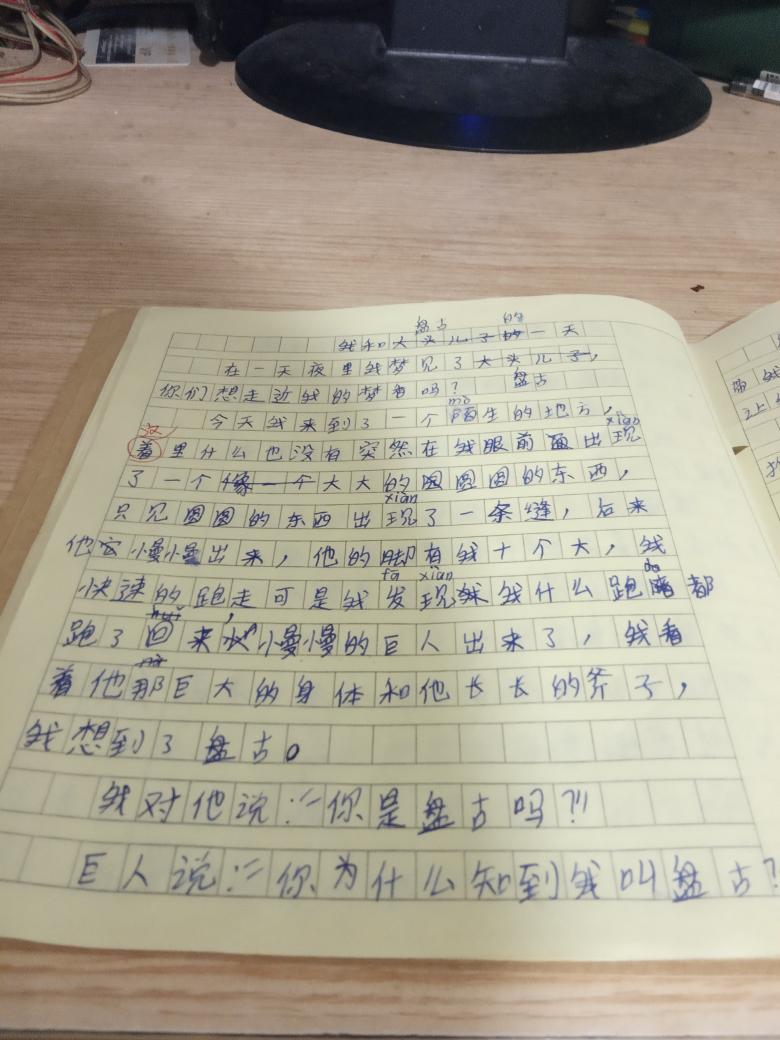 盘古 的
我和大头儿子的一天
在一天夜里我梦见了大头儿子,
你们想走近我的梦看吗? 盘古
mò
今天我来到了一个陌生的地方,
这 xiàn
着里什么也没有突然在我眼前面出现
了一个像一个大大的圆圆圆的东西,
xiàn
只见圆圆的东西出现了一条缝,后来
他它慢慢出来,他的脚有我十个大,我
fā xiàn
快速的跑走可是我发现我什么跑 都
跑了回来 慢慢的巨人出来了,我看
着他那巨大的身体和他长长的斧子,
我想到了盘古。
我对他说:“你是盘古吗?!
巨人说:“你为什么知到我叫盘古?